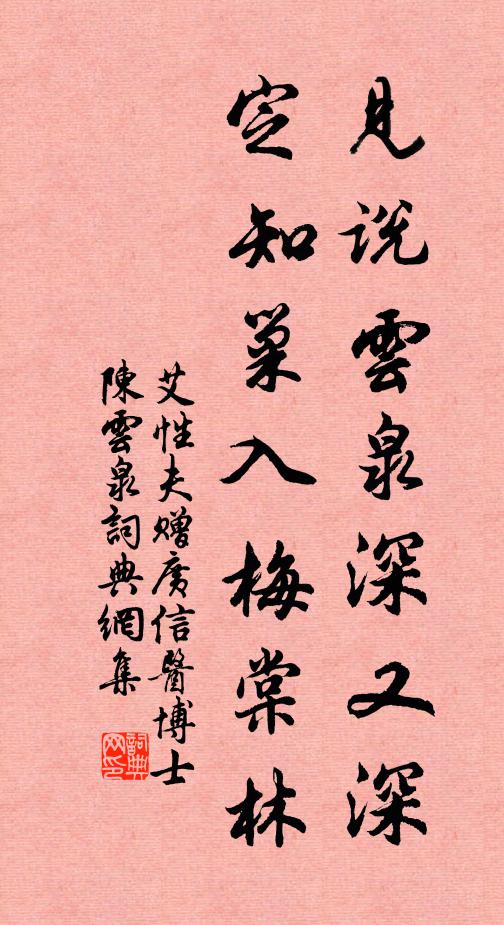 見説雲泉深又深
定知巢入梅棠林
艾性夫赠廣信醫博士
陳雲泉詞典網集
詞典网印